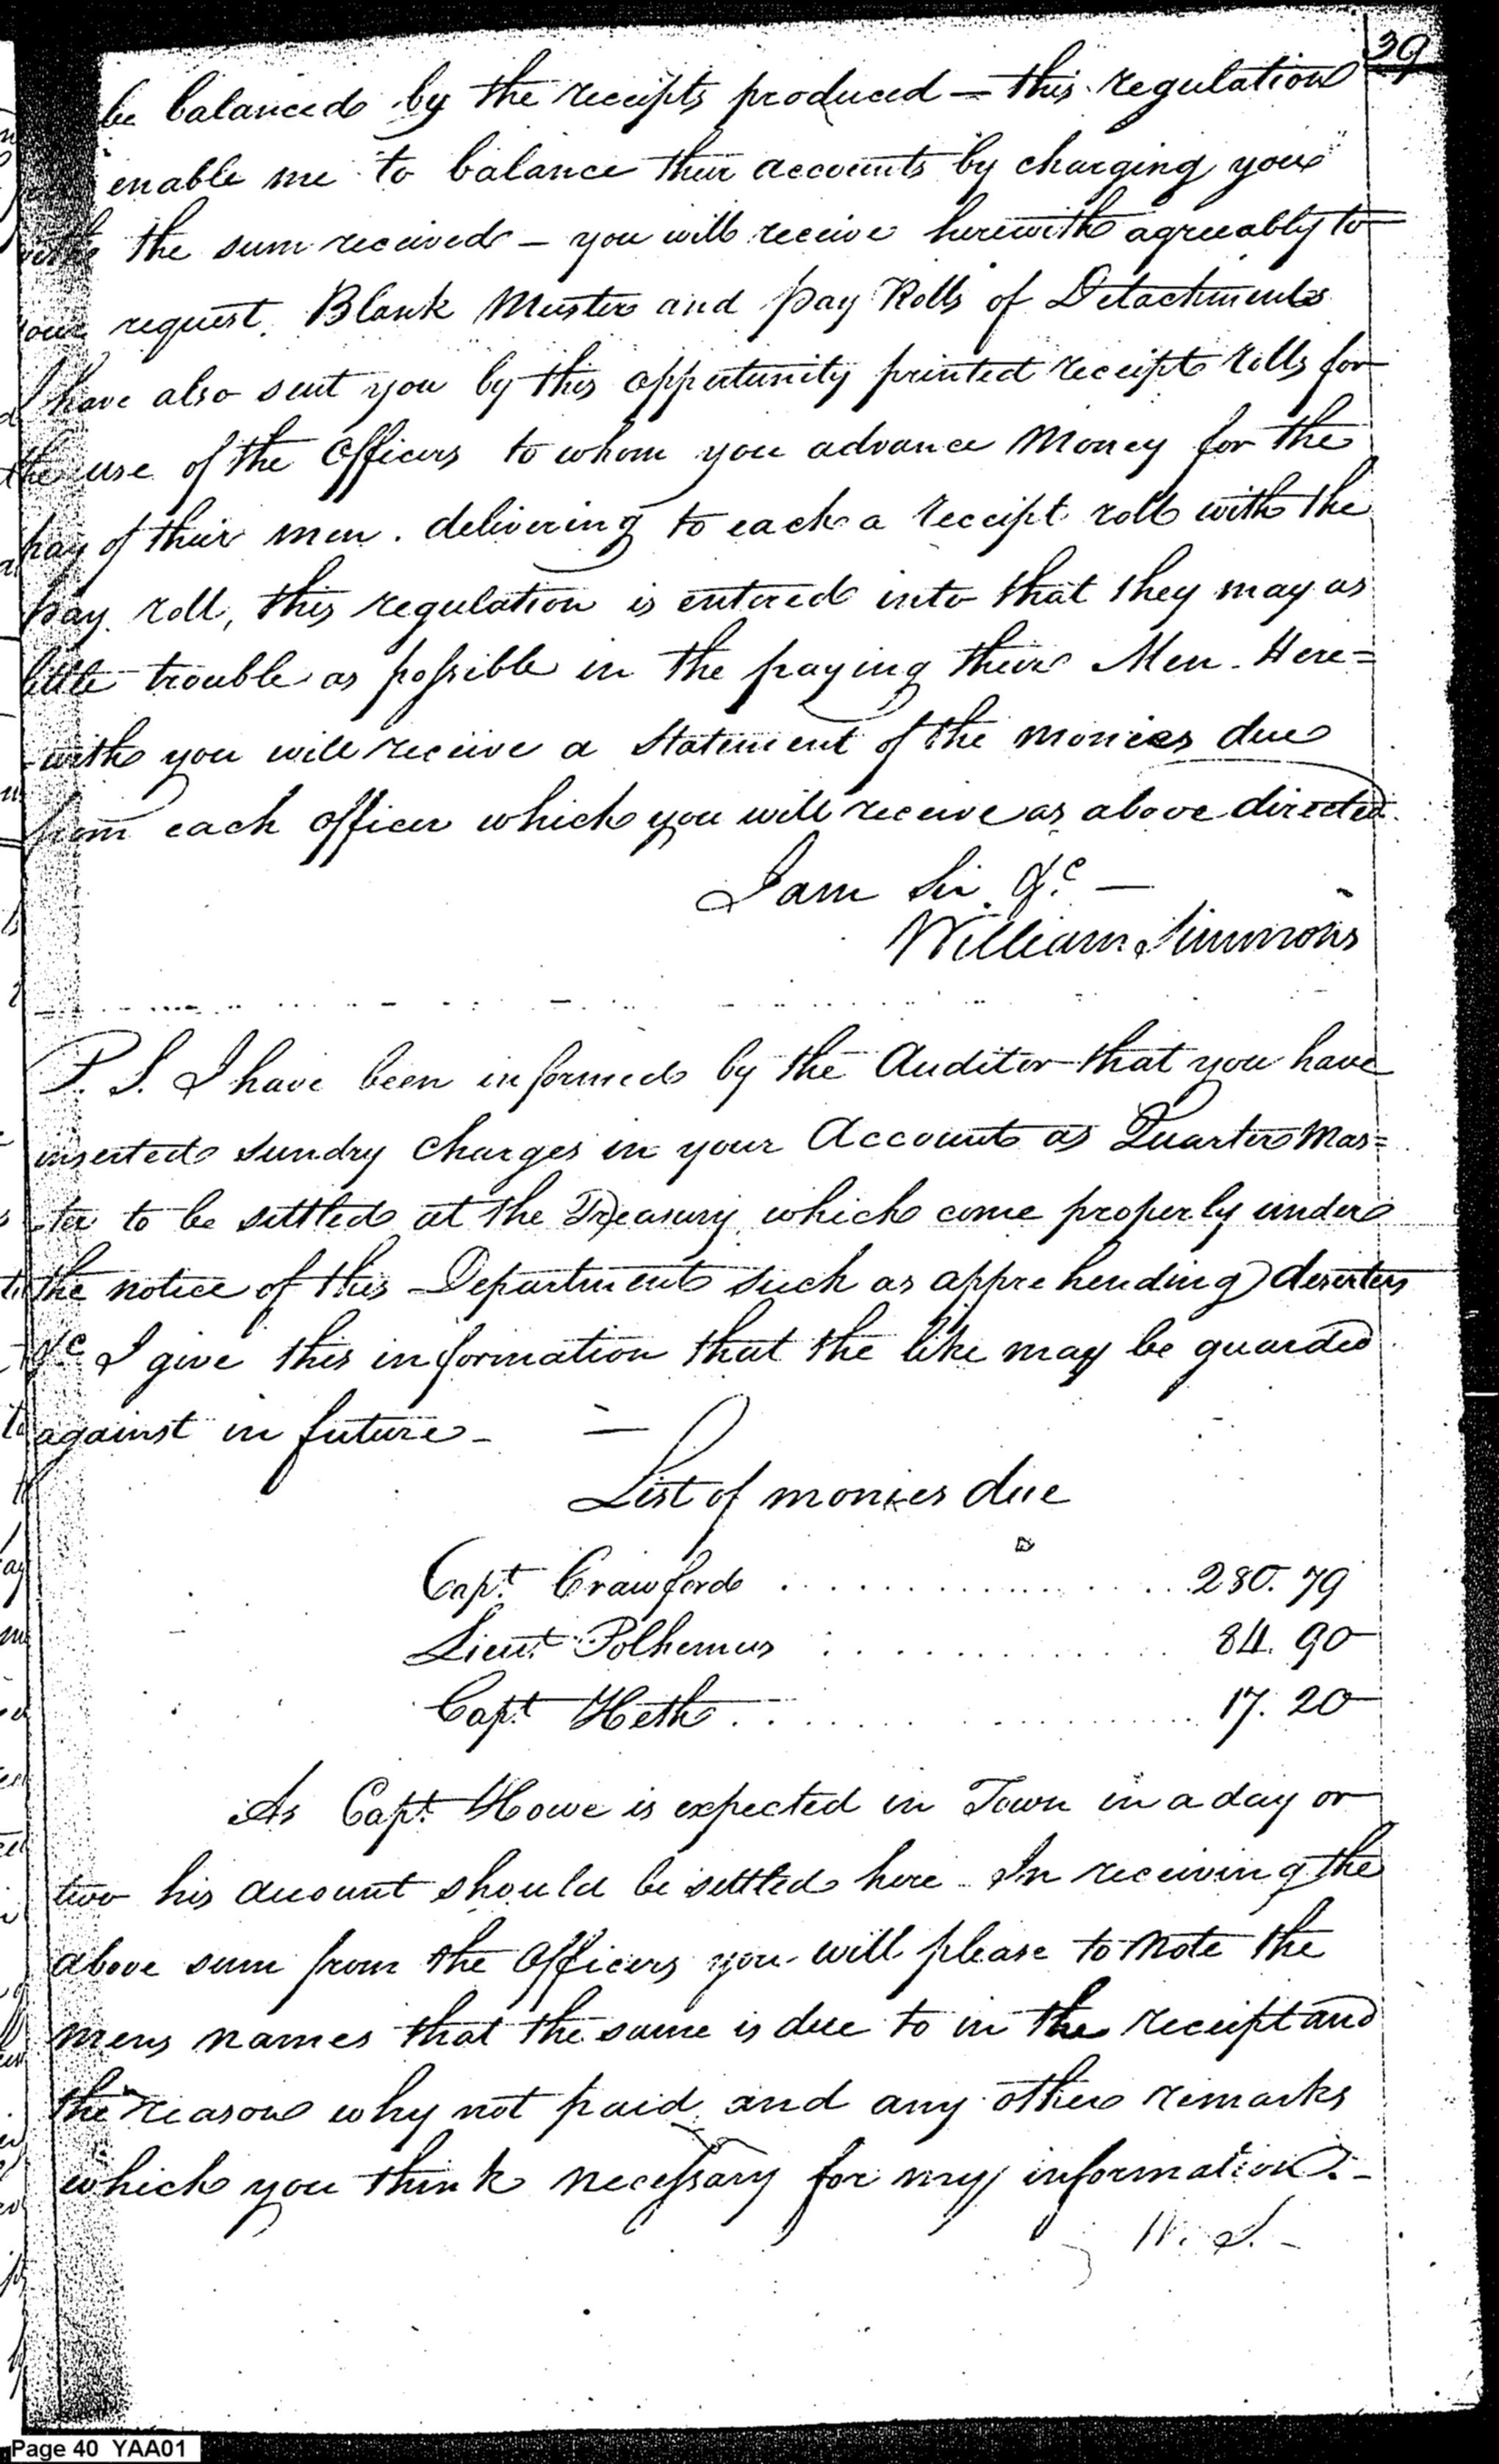 39
be balanced by the receipts produced — this regulation
enable me to balance their accounts by charging you
with the sum received — you will receive herewith agreeably to
your request, Blank Muster and pay Rolls of Detachments
I have also sent you by this oppertunity printed receipt rolls for
the use of the Officers to whom you advance Money for the
pay of their men. delivering to each a receipt roll with the
pay roll, this regulation is entered into that they may as
little trouble as possible in the paying their Men. Here=
with you will receive a Statement of the monies due
from each officer which you will receive as above directed.
I am Sir &c —
William Simmons
P. S. I have been informed by the Auditor that you have
inserted sundry charges in your Account as Quarter Mas=
ter to be settled at the Treasury which come properly under
the notice of this Department such as apprehending deserters
&c I give this information that the like may be guarded
against in future —
List of monies due
D
Capt. Crawford . . . . . . . . . . 280. 79
Lieut. Polhemus . . . . . . . . . . 84. 90
Capt. Heth . . . . . . . . . . 17. 20
As Capt. Howe is expected in Town in a day or
two his account should be settled here — In receiving the
above sum from the Officers you will please to Note the
mens names that the same is due to in the receipt and
the reason why not paid, and any other remarks
which you think necessary for my information. —
W. S. —
Page 40 YAA01